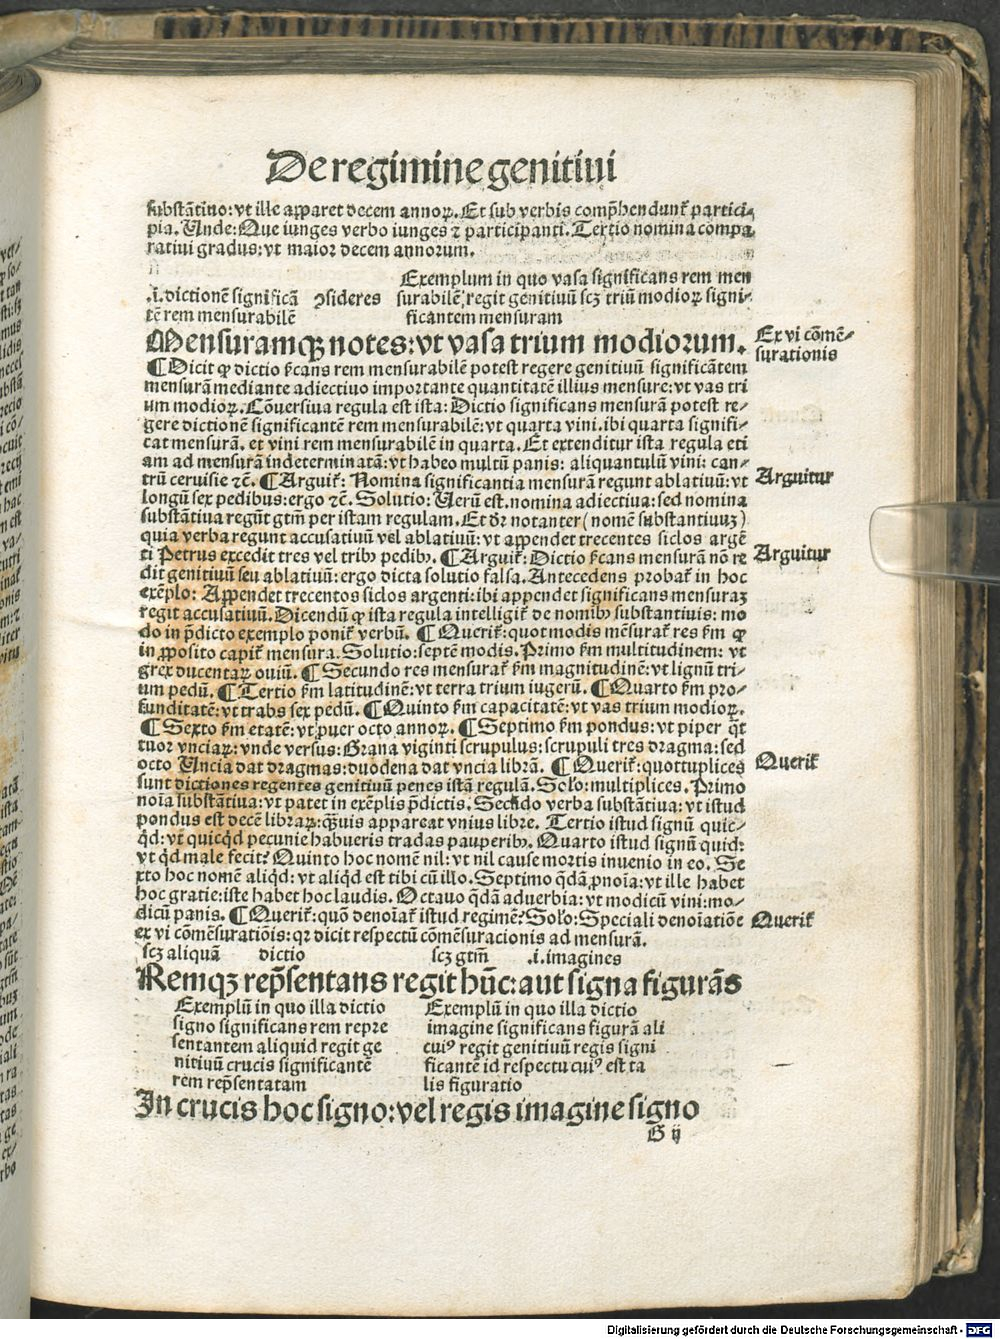 De regimine genitiui
substātiuo: vt ille apparet decem annoꝝ. Et sub verbis comp̄hendunt᷑ partici⸗
pia. Unde: Que iunges verbo iunges ⁊ participanti. Tertio nomina compa⸗
ratiui gradus: vt maior decem annorum.
Exemplum in quo vasa significans rem men
.i. dictionē significā ꝯsideres surabilē regit genitiuū scꝫ triū modioꝝ signi⸗
tē rem mensurabilē ficantem mensuram
Mensuramqꝫ notes: vt vasa trium modiorum.
Ex vi cōmē⸗
surationis
¶ Dicit ꝙ dictio sīcans rem mensurabilē potest regere genitiuū significātem
mensurā mediante adiectiuo importante quantitatē illius mensure: vt vas tri
um modioꝝ. Cōuersiua regula est ista: Dictio significans mensurā potest re⸗
gere dictionē significantē rem mensurabilē: vt quarta vini. ibi quarta signifi⸗
cat mensurā. et vini rem mensurabilē in quarta. Et extenditur ista regula eti
am ad mensurā indeterminatā: vt habeo multū panis: aliquantulū vini: can⸗
trū ceruisie ⁊c̄. ¶ Arguit᷑: Nomina significantia mensurā regunt ablatiuū: vt
Arguitur
longū sex pedibus: ergo ⁊c̄. Solutio: Uerū est. nomina adiectiua: sed nomina
substātiua regūt gtm̄ per istam regulam. Et dr̄ notanter (nomē substantiuuꝫ)
quia verba regunt accusatiuū vel ablatiuū: vt appendet trecentes siclos argē
ti Petrus excedit tres vel tribꝰ pedibꝰ. ¶ Arguit᷑: Dictio sīcans mensurā nō re
Arguitur
dit genitiuū seu ablatiuū: ergo dicta solutio falsa. Antecedens probat᷑ in hoc
exēplo: Appendet trecentos siclos argenti: ibi appendet significans mensuraꝫ
regit accusatiuū. Dicendū ꝙ ista regula intelligit᷑ de nomibꝰ substantiuis: mo
do in p̄dicto exemplo ponit᷑ verbū. ¶ Querit᷑: quot modis mēsurat᷑ res sīm ꝙ
in ꝓposito capit᷑ mensura. Solutio: septē modis. Primo sīm multitudinem: vt
grex ducentaꝝ ouiū. ¶ Secundo res mensurat᷑ sīm magnitudinē: vt lignū tri⸗
um pedū. ¶ Tertio sīm latitudinē: vt terra trium iugerū. ¶ Quarto sīm pro⸗
funditatē: vt trabs sex pedū. ¶ Quinto sīm capacitatē: vt vas trium modioꝝ.
¶ Sexto sīm etatē: vt puer octo annoꝝ. ¶ Septimo sīm pondus: vt piper q̄t
tuor vnciaꝝ: vnde versus: Grana viginti scrupulus: scrupuli tres dragma: sed
octo Uncia dat dragmas: duodena dat vncia librā. ¶ Querit᷑: quottuplices
Querit᷑
sunt dictiones regentes genitiuū penes istā regulā. Solo: multiplices. Primo
noīa substātiua: vt patet in exēplis p̄dictis. Secūdo verba substātiua: vt istud
pondus est decē libraꝝ: q̄uis appareat vnius libre. Tertio istud signū quic⸗
q̇d: vt quicq̇d pecunie habueris tradas pauperibꝰ. Quarto istud signū quid:
vt q̇d male fecit? Quinto hoc nomē nil: vt nil cause mortis inuenio in eo. Se
xto hoc nomē aliq̇d: vt aliq̇d est tibi cū illo. Septimo q̄dā ꝓnoīa: vt ille habet
hoc gratie: iste habet hoc laudis. Octauo q̄dā aduerbia: vt modicū vini: mo⸗
dicū panis. ¶ Querit᷑: quō denoīat᷑ istud regimē? Solo: Speciali denoīatiōe
Querit᷑
ex vi cōmēsuratiōis: qꝛ dicit respectū cōmēsuracionis ad mensurā.
scꝫ aliquā dictio scꝫ gtm̄ .i. imagines
Remqꝫ rep̄sentans regit hūc: aut signa figurās
Exemplū in quo illa dictio
signo significans rem repre
sentantem aliquid regit ge
nitiuū crucis significantē
rem rep̄sentatam
Exemplū in quo illa dictio
imagine significans figurā ali
cuiꝰ regit genitiuū regis signi
ficantē id respectu cuiꝰ est ta
lis figuratio
In crucis hoc signo: vel regis imagine signo
G ij
Digitalisierung gefördert durch die Deutsche Forschungsgemeinschaft - DFG